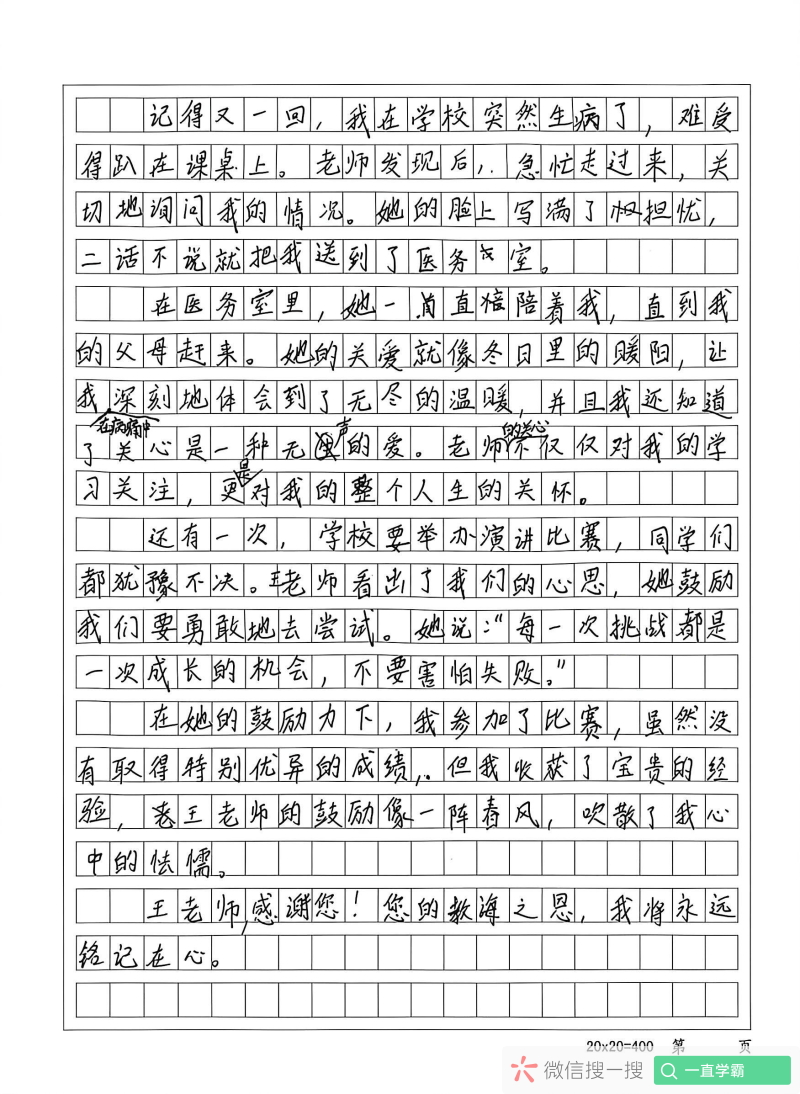 记得又一回，我在学校突然生病了，难受
得趴在课桌上。老师发现后，急忙走过来，关
切地询问我的情况。她的脸上写满了担忧，
二话不说就把我送到了医务室。
在医务室里，她一直陪着我，直到我
的父母赶来。她的关爱就像冬日里的暖阳，让
我深刻地体会到了无尽的温暖，并且我还知道
在病痛中 声 的关心
了关心是一种无的爱。老师不仅仅对我的学
是
习关注，更对我的整个人生的关怀。
还有一次，学校要举办演讲比赛，同学们
都犹豫不决。王老师看出了我们的心思，她鼓励
我们要勇敢地去尝试。她说：“每一次挑战都是
一次成长的机会，不要害怕失败。”
在她的鼓励力下，我参加了比赛，虽然没
有取得特别优异的成绩，但我收获了宝贵的经
验，王老师的鼓励像一阵春风，吹散了我心
中的怯懦。
王老师，感谢您！您的教海之恩，我将永远
铭记在心。
20x20=400 第 页
微信搜一搜 一直学霸